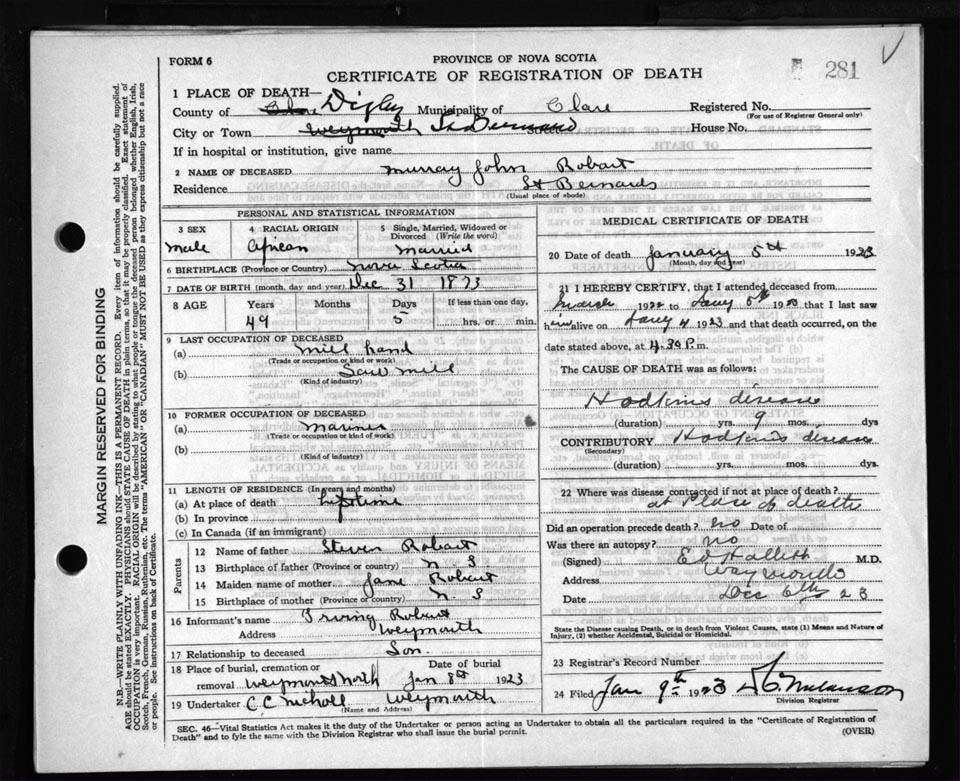 FORM 6
PROVINCE OF NOVA SCOTIA
CERTIFICATE OF REGISTRATION OF DEATH
281
1 PLACE OF DEATH—
County of Clare Digby Municipality of Clare Registered No.
(For use of Registrar General only)
City or Town Weymouth St Bernard House No.
If in hospital or institution, give name
2 NAME OF DECEASED Murray John Robart
Residence St Bernards
(Usual place of abode)
PERSONAL AND STATISTICAL INFORMATION
3 SEX 4 RACIAL ORIGIN 5 Single, Married, Widowed or Divorced (Write the word)
Male African Married
6 BIRTHPLACE (Province or Country) Nova Scotia
7 DATE OF BIRTH (month, day and year) Dec 31 1873
8 AGE Years Months Days If less than one day,
49 5 hrs. or min.
9 LAST OCCUPATION OF DECEASED
(a) mill hand
(Trade or occupation or kind or work)
(b) Saw mill
(Kind of industry)
10 FORMER OCCUPATION OF DECEASED
(a) Mariner
(Trade or occupation or kind of work)
(b)
(Kind of industry)
11 LENGTH OF RESIDENCE (In years and months)
(a) At place of death Lifetime
(b) In province
(c) In Canada (if an immigrant)
Parents
12 Name of father Steven Robart
13 Birthplace of father (Province or country) N S
14 Maiden name of mother Jane Robart
15 Birthplace of mother (Province or country) N S
16 Informant's name Irving Robart
Address Weymouth
17 Relationship to deceased Son
18 Place of burial, cremation or removal Weymouth North Date of burial Jan 8th 1923
19 Undertaker C.C. Nicholl Weymouth
(Name and Address)
MEDICAL CERTIFICATE OF DEATH
20 Date of death January 5th 1923
(Month, day and year)
21 I HEREBY CERTIFY, that I attended deceased from
March 1922 to Jany 5th 1923 that I last saw
him alive on Jany 4 1923 and that death occurred, on the
date stated above, at 4.30 P.m.
The CAUSE OF DEATH was as follows:
Hodkins disease
(duration) yrs. 9 mos. dys
CONTRIBUTORY Hodkins disease
(Secondary)
(duration) yrs. mos. dys.
22 Where was disease contracted if not at place of death?
at place of death
Did an operation precede death? no Date of
Was there an autopsy? no
(Signed) M.D.
Address Weymouth
Date Dec 6th 23
State the Disease causing Death, or in death from Violent Causes, state (1) Means and Nature of Injury, (2) whether Accidental, Suicidal or Homicidal.
23 Registrar's Record Number
24 Filed Jan 9th 1923
Division Registrar
SEC. 46—Vital Statistics Act makes it the duty of the Undertaker or person acting as Undertaker to obtain all the particulars required in the "Certificate of Registration of
Death" and to fyle the same with the Division Registrar who shall issue the burial permit. (OVER)
MARGIN RESERVED FOR BINDING
N.B.—WRITE PLAINLY WITH UNFADING INK—THIS IS A PERMANENT RECORD. Every item of information should be carefully supplied.
AGE should be stated EXACTLY. PHYSICIANS should STATE CAUSE OF DEATH in plain terms, so that it may be properly classified. Exact statement of
OCCUPATION is very important. RACIAL ORIGIN will be described by stating to what people or tongue the deceased person belonged whether English, Irish,
Scotch, French, German, Russian, Ruthenian, etc. The terms "AMERICAN" OR "CANADIAN" MUST NOT BE USED as they express citizenship but not a race
or people. See instructions on back of Certificate.